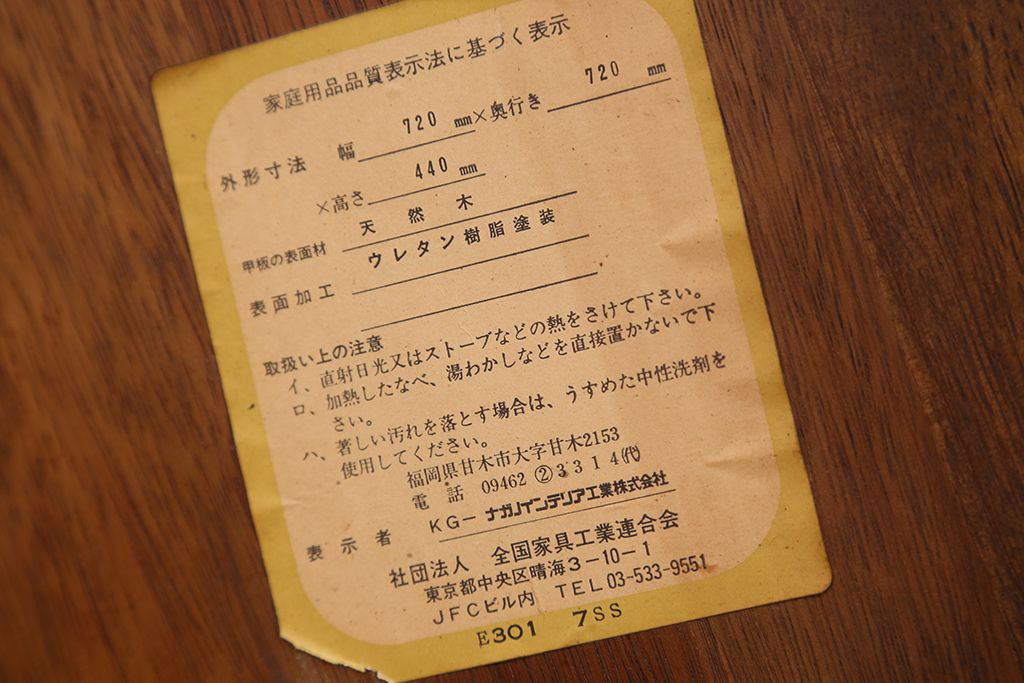 家庭用品品質表示法に基づく表示
外形寸法 幅 720 mm×奥行き 720 mm
×高さ 440 mm
甲板の表面材 天然木
表面加工 ウレタン樹脂塗装
取扱い上の注意
イ、直射日光又はストーブなどの熱をさけて下さい。
ロ、加熱したなべ、湯わかしなどを直接置かないで下
さい。
ハ、著しい汚れを落とす場合は、うすめた中性洗剤を
使用してください。
福岡県甘木市大字甘木2153
電話 09462 ②3314㈹
表示者 KG-ナガノインテリア工業株式会社
社団法人 全国家具工業連合会
東京都中央区晴海3-10-1
JFCビル内 TEL 03-533-9551
E301 7SS